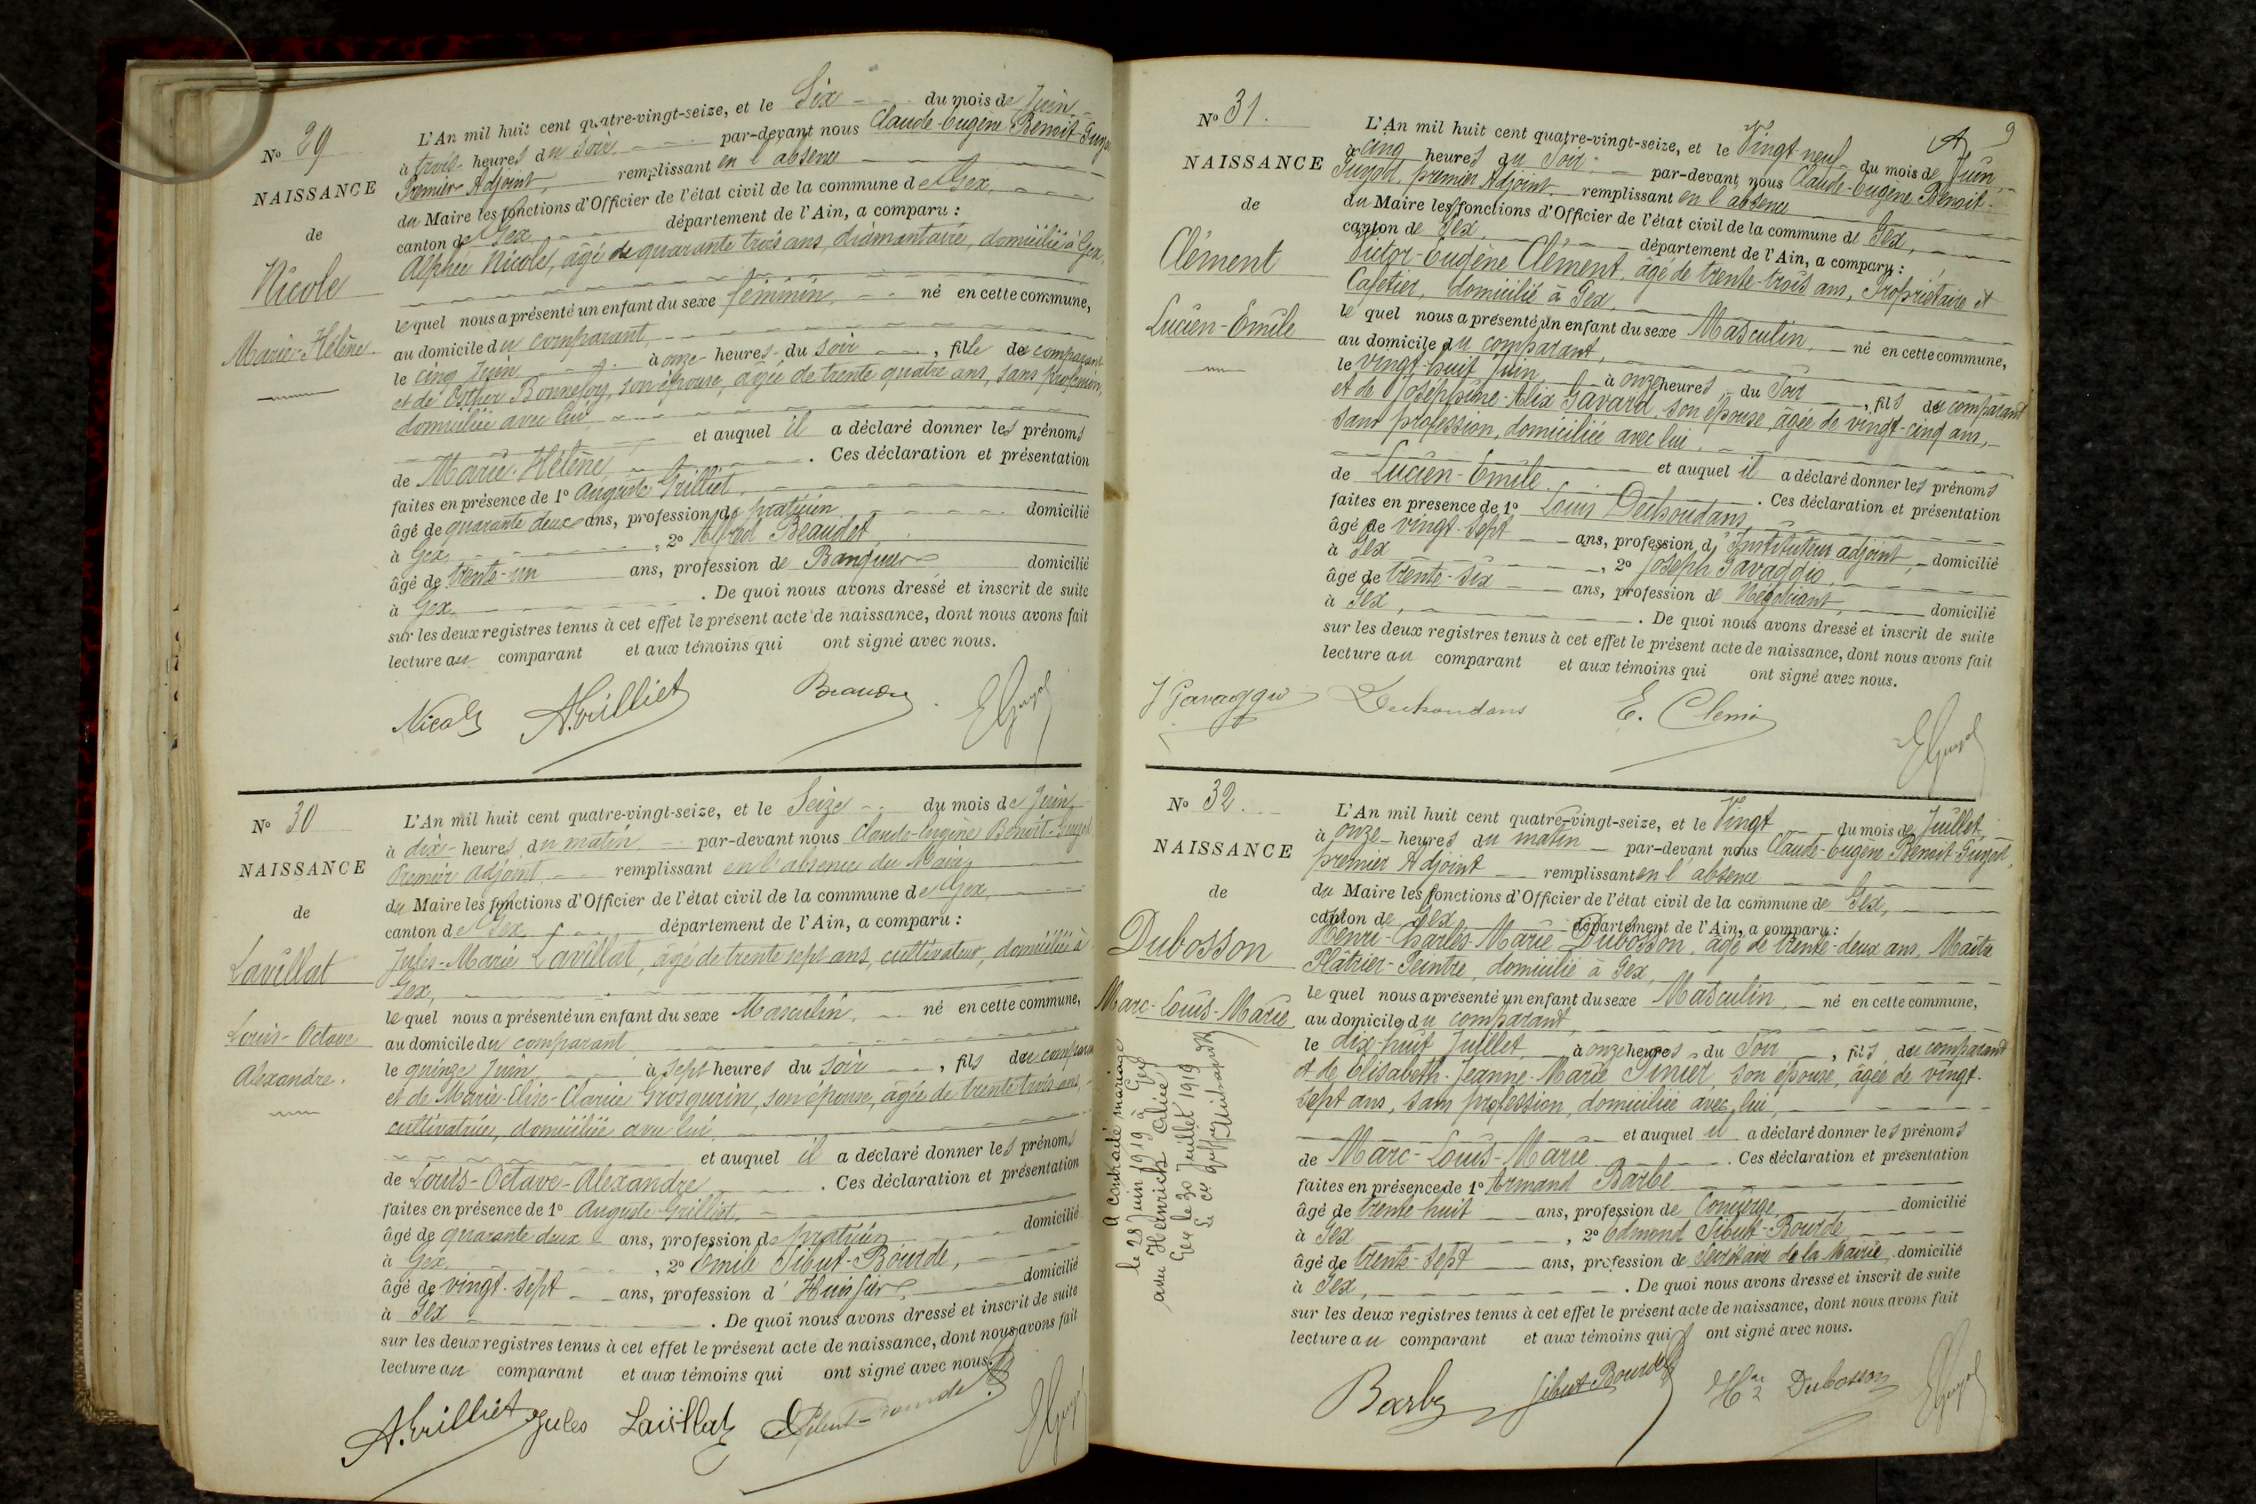 Nº 29
NAISSANCE
de
Nicole
Marie-Hélène
L'An mil huit cent quatre-vingt-seize, et le Six du mois de Juin
à trois heures du soir par-devant nous Claude-Eugène Benoit-Guyod
Premier Adjoint, remplissant en l'absence
du Maire les fonctions d'Officier de l'état civil de la commune de Gex,
canton de Gex département de l'Ain, a comparu :
Alphée Nicole, âgé de quarante trois ans, diamantaire, domicilié à Gex,
lequel nous a présenté un enfant du sexe féminin, né en cette commune,
au domicile du comparant,
le cinq Juin à onze heures du soir, fille du comparant
et de Esther Bonnefoy, son épouse, âgée de trente quatre ans, sans profession,
domiciliée avec lui
et auquel il a déclaré donner les prénoms
de Marie-Hélène. Ces déclaration et présentation
faites en présence de 1º Auguste Grilliet,
âgé de quarante deux ans, profession de praticien domicilié
à Gex, 2º Alfred Beaudet
âgé de trente-un ans, profession de Banquier domicilié
à Gex. De quoi nous avons dressé et inscrit de suite
sur les deux registres tenus à cet effet le présent acte de naissance, dont nous avons fait
lecture au comparant et aux témoins qui ont signé avec nous.
Nicole A. Grilliet E Guyod
Nº 30
NAISSANCE
de
Lavillat
Louis-Octave
Alexandre.
L'An mil huit cent quatre-vingt-seize, et le Seize du mois de Juin,
à dix heures du matin par-devant nous Claude-Eugène Benoit-Guyod
Premier Adjoint, remplissant en l'absence du Maire
du Maire les fonctions d'Officier de l'état civil de la commune de Gex,
canton de Gex, département de l'Ain, a comparu :
Jules-Marie Lavillat, âgé de trente sept ans, cultivateur, domicilié à
Gex,
lequel nous a présenté un enfant du sexe Masculin, né en cette commune,
au domicile du comparant,
le quinze Juin à sept heures du soir, fils du comparant
et de Marie-Elise-Clarice Grosgurin, son épouse, âgée de trente trois ans,
cultivatrice, domiciliée avec lui,
et auquel il a déclaré donner les prénoms
de Louis-Octave-Alexandre. Ces déclaration et présentation
faites en présence de 1º Auguste Grilliet,
âgé de quarante deux ans, profession de praticien domicilié
à Gex, 2º Emile Sibut-Bourde,
âgé de vingt-sept ans, profession d'Huissier, domicilié
à Gex. De quoi nous avons dressé et inscrit de suite
sur les deux registres tenus à cet effet le présent acte de naissance, dont nous avons fait
lecture au comparant et aux témoins qui ont signé avec nous.
A. Grilliet Jules Lavillat E Sibut-Bourde E Guyod
9
Nº 31.
NAISSANCE
de
Clément
Lucien-Emile
L'An mil huit cent quatre-vingt-seize, et le Vingt-neuf du mois de Juin,
à cinq heures du Soir par-devant nous Claude-Eugène Benoit-
Guyod, premier Adjoint, remplissant en l'absence
du Maire les fonctions d'Officier de l'état civil de la commune de Gex,
canton de Gex, département de l'Ain, a comparu :
Victor-Eugène Clément, âgé de trente-trois ans, Propriétaire et
Cafetier, domicilié à Gex,
lequel nous a présenté un enfant du sexe Masculin, né en cette commune,
au domicile du comparant,
le vingt-huit Juin à onze heures du Soir, fils du comparant
et de Joséphine-Alix Gavard, son épouse, âgée de vingt-cinq ans,
sans profession, domiciliée avec lui,
et auquel il a déclaré donner les prénoms
de Lucien-Emile. Ces déclaration et présentation
faites en présence de 1º Louis Duchoudans,
âgé de vingt-sept ans, profession d'Instituteur adjoint, domicilié
à Gex, 2º Joseph Gavaggio,
âgé de trente-six ans, profession de Négociant, domicilié
à Gex,. De quoi nous avons dressé et inscrit de suite
sur les deux registres tenus à cet effet le présent acte de naissance, dont nous avons fait
lecture au comparant et aux témoins qui ont signé avec nous.
J Gavaggio Duchoudans E. Clément E Guyod
Nº 32.
NAISSANCE
de
Dubosson
Marc-Louis-Marie
A contracté mariage
le 28 juin 1919 à Gex
avec Heinrich Alice
Gex le 30 Juillet 1919
Le Greffier
L'An mil huit cent quatre-vingt-seize, et le Vingt du mois de Juillet,
à onze heures du matin par-devant nous Claude-Eugène Benoit-Guyod,
premier Adjoint remplissant en l'absence
du Maire les fonctions d'Officier de l'état civil de la commune de Gex,
canton de Gex département de l'Ain, a comparu :
Henri-Charles-Marie Dubosson, âgé de trente-deux ans, Maître
Plâtrier-Peintre, domicilié à Gex,
lequel nous a présenté un enfant du sexe Masculin, né en cette commune,
au domicile du comparant,
le dix-huit Juillet, à onze heures du Soir, fils du comparant
et de Elisabeth-Jeanne-Marie Pinier, son épouse, âgée de vingt-
sept ans, sans profession, domiciliée avec lui,
et auquel il a déclaré donner les prénoms
de Marc-Louis-Marie. Ces déclaration et présentation
faites en présence de 1º Armand Barbe
âgé de trente huit ans, profession de Concierge, domicilié
à Gex, 2º Edmond Sibut-Bourde
âgé de trente-sept ans, profession de Secrétaire de la Mairie, domicilié
à Gex,. De quoi nous avons dressé et inscrit de suite
sur les deux registres tenus à cet effet le présent acte de naissance, dont nous avons fait
lecture au comparant et aux témoins qui ont signé avec nous.
Barbe Sibut-Bourde Hri Dubosson E Guyod